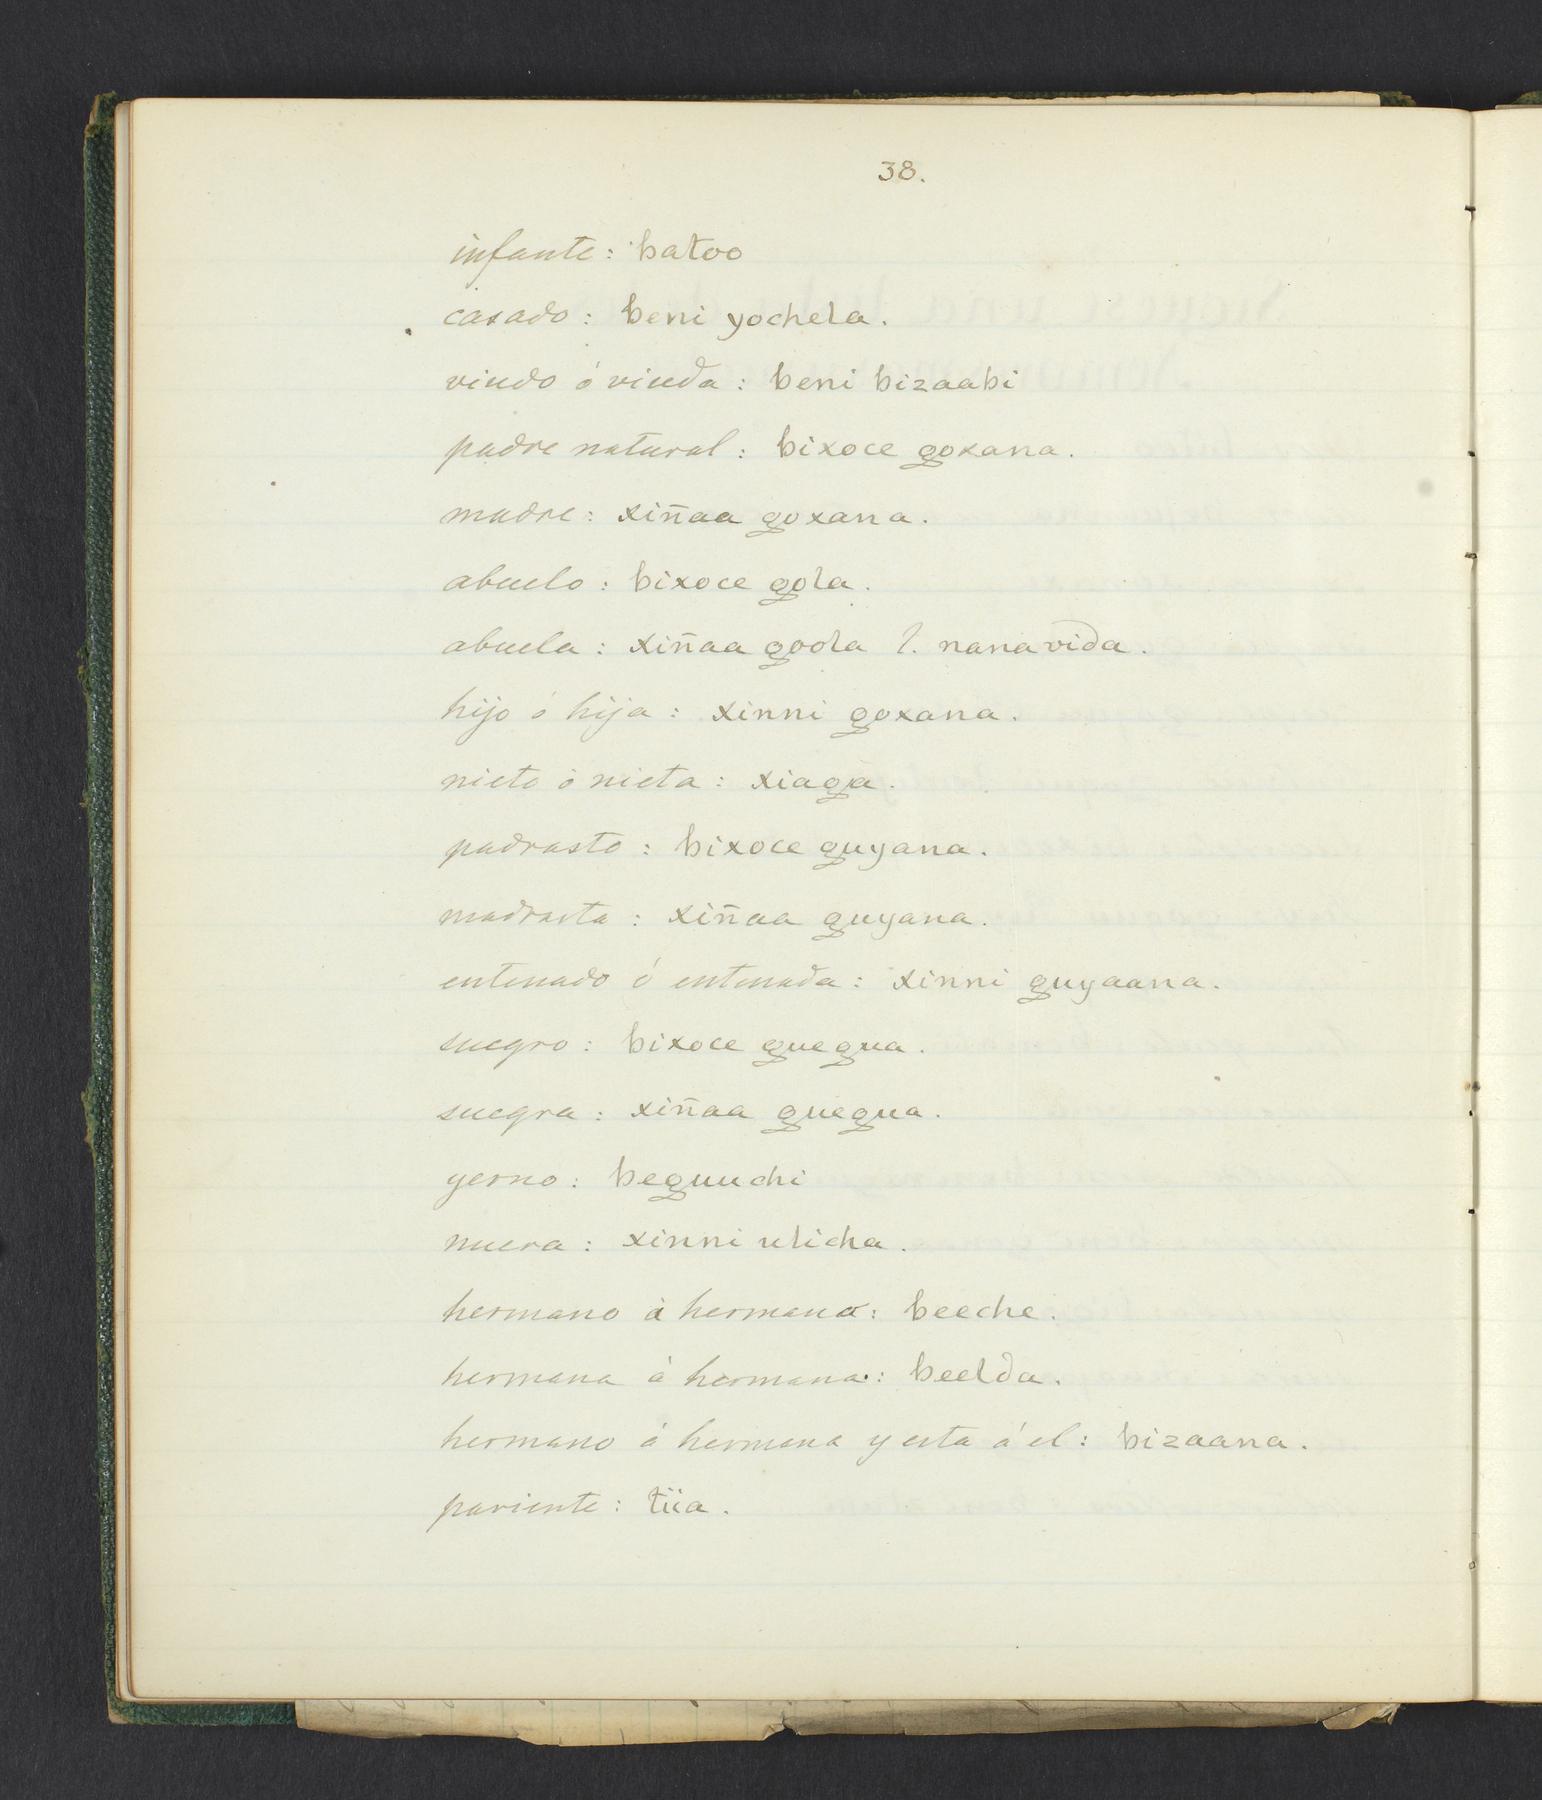 38.
infante: batoo
casado: beni yochela.
viudo ó viuda: beni bizaabi
padre natural: bixoce goxana.
madre: xiñaa goxana.
abuelo: bixoce gola.
abuela: xiñaa goola l. nanavida.
hijo ó hija: xinni goxana.
nieto ó nieta: xiaga.
padrasto: bixoce guyana.
madrasta: xiñaa guyana.
entenado ó entenada: xinni guyaana.
suegro: bixoce guegua.
suegra: xiñaa guegua.
yerno: beguuchi
nuera: xinni ulicha.
hermano à hermano: beeche.
hermana à hermana: beelda.
hermano á hermana y esta á el: bizaana.
pariente: tiia.